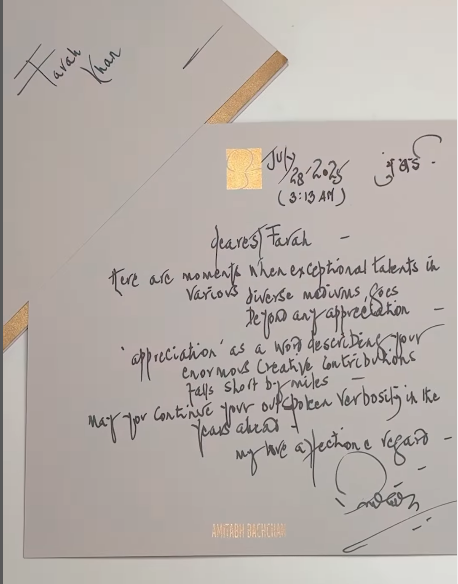 Farah
Khan
July
28.2025
(3:13 AM)
मुंबई
dearest Farah -
there are moments when exceptional talents in
various diverse mediums, goes
beyond any appreciation -
'appreciation' as a word describing your
enormous creative contributions
falls short by miles -
may you continue your outspoken verbosity in the
years ahead -
my love affection e regard -
AMITABH BACHCHAN